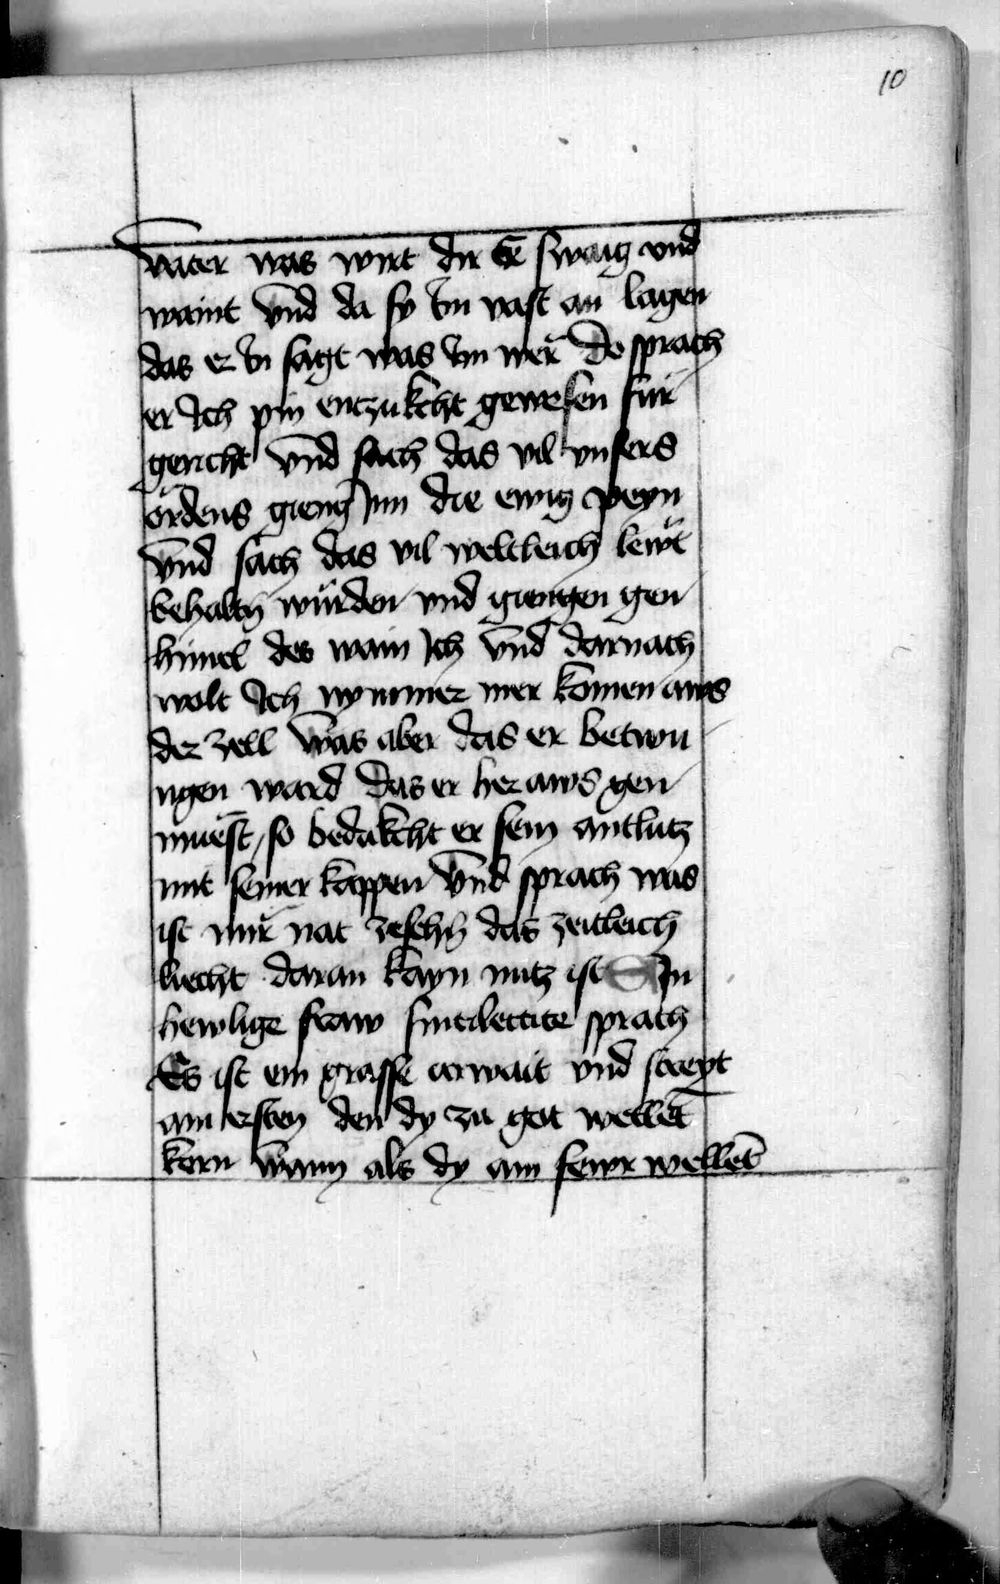 10
vater was wirt dir Er swaig vnd
waint vnd da sy im vast an lagen
das er in sagt was im wer Do sprach
er Ich pin entzukcht gewesen für
gericht vnd sach das vil vnsers
ördens gieng Inn die ewig peyn
vnd sach das vil weltleich lewt
behaltn würden vnd giengen gen
himel des wain Ich vnd darnach
wolt Ich nymmer mer komen aws
der zell Was aber das er betwu
ngen ward das er her aws gen
muest / so bedakcht er sein antlutz
mit seiner kappen Vnd sprach was
ist mir nat zesehn das zeitleich
liecht daran kayn nutz ist Ein
hewlige fraw sprach
Es ist ein grasse arwait vnd streyt
am ersten den dy zu got wellet
kern Wann als dy ain fewr wellet